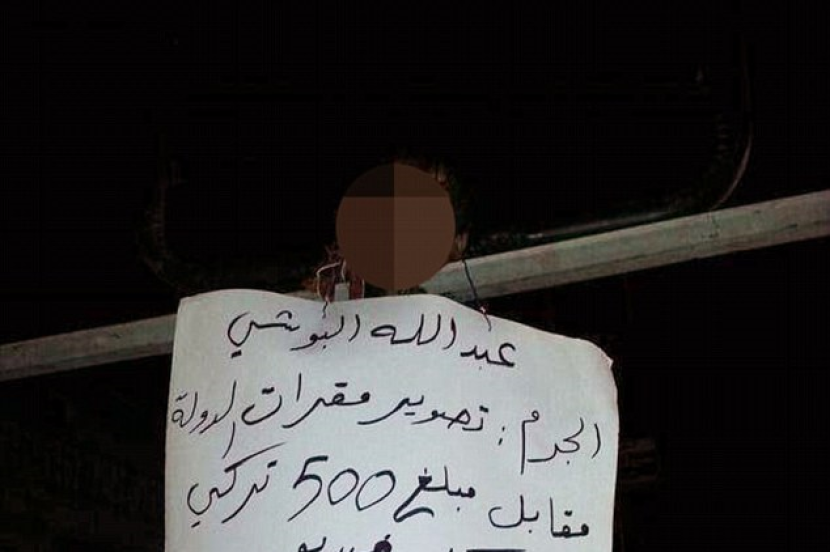 عبدالله البوشي
الجرم : تصوير مقرات الدولة
مقابل مبلغ 500 تركي